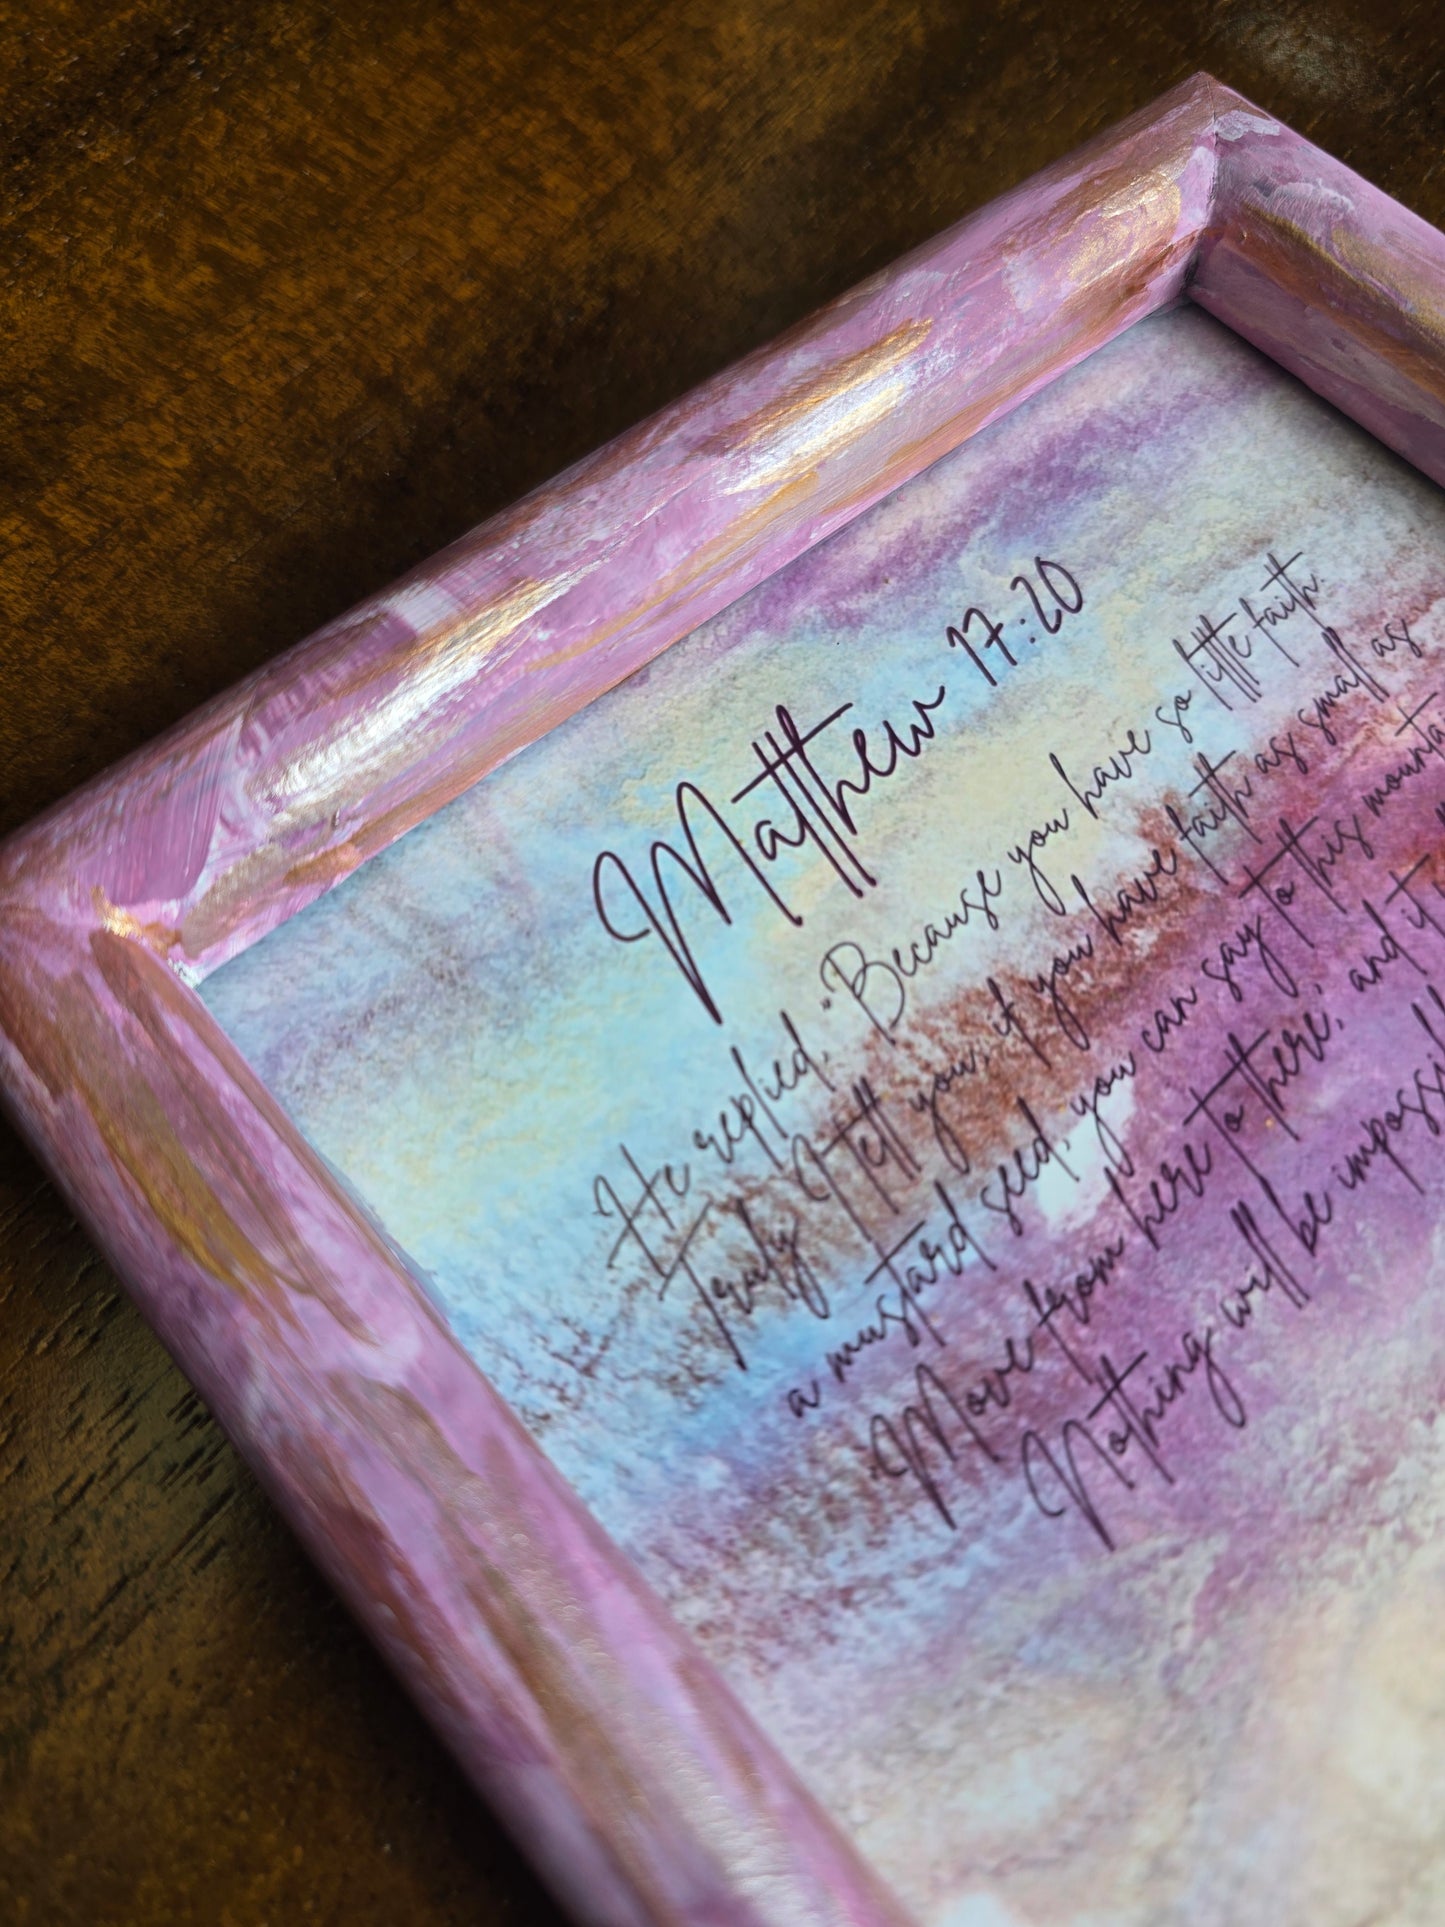 Matthew 17:20
He replied, "Because you have so little faith.
Truly I tell you, if you have faith as small as
a mustard seed, you can say to this mounta
Move from here to there,' and it
Nothing will be impossi